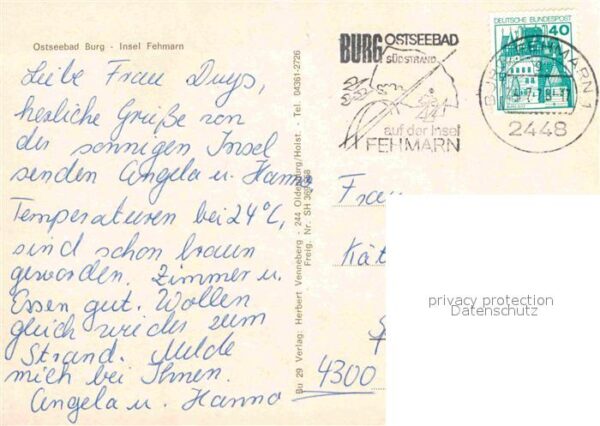 Ostseebad Burg - Insel Fehmarn
Liebe Frau Duys,
herzliche Grüße von
der sonnigen Insel
senden Angela u. Hanno
Temperaturen bei 24°C,
sind schon braun
geworden. Zimmer u.
Essen gut. Wollen
gleich wieder zum
Strand. Melde
mich bei Ihnen.
Angela u. Hanno
Bu 29 Verlag: Herbert Venneberg - 244 Oldenburg/Holst. - Tel. 04361-2726
Freig. Nr. SH
BURG OSTSEEBAD
SÜDSTRAND
auf der Insel
FEHMARN
DEUTSCHE BUNDESPOST
40
BURG FEHMARN 1
2448
Frau
Kät
4300
privacy protection
Datenschutz